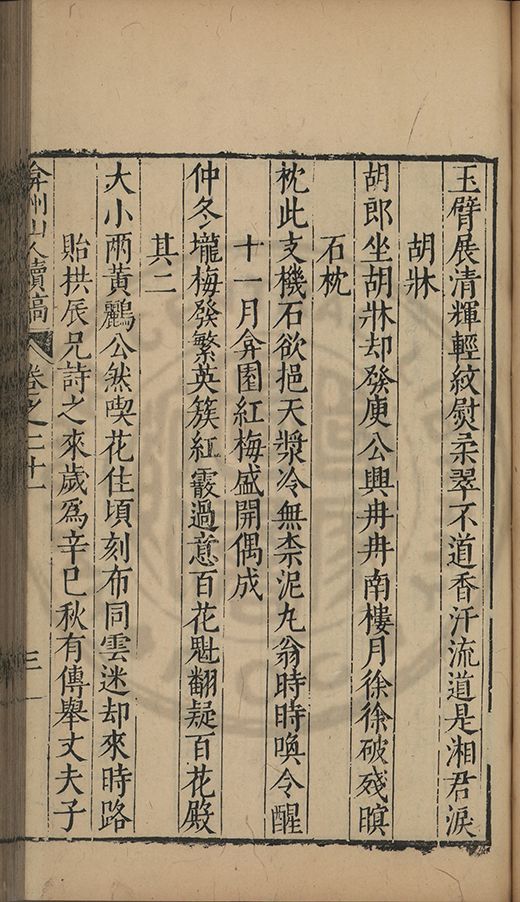 玉臂展清輝輕紋熨柔翠不道香汗流道是湘君淚
胡牀
胡郎坐胡牀却發庾公興冉冉南樓月徐徐破殘暝
石枕
枕此支機石欲挹天漿冷無柰泥丸翁時時喚令醒
十一月弇園紅梅盛開偶成
仲冬壠梅發繁英簇紅霞過意百花魁翻疑百花殿
其二
大小兩黃鸝公然喫花住頃刻布同雲迷却來時路
貽拱辰兄詩之來歲爲辛巳秋有傳舉丈夫子
弇州山人續稿 卷之二十一 三